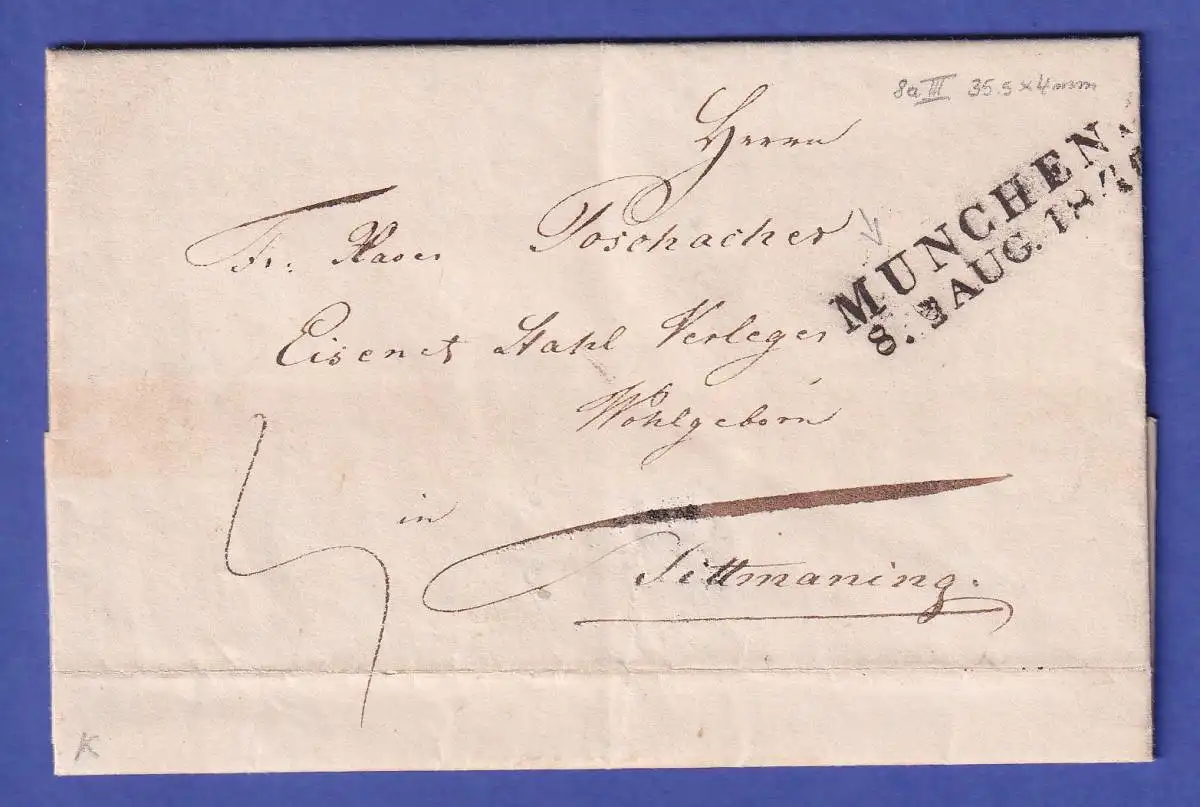 8a III 35.5 x 4mm
Herrn
MÜNCHEN.
8. AUG. 18
Fr: Xaver Poschacher
Eisen et Stahl Verleger
Wohlgeborn
in
Tittmaning.
K